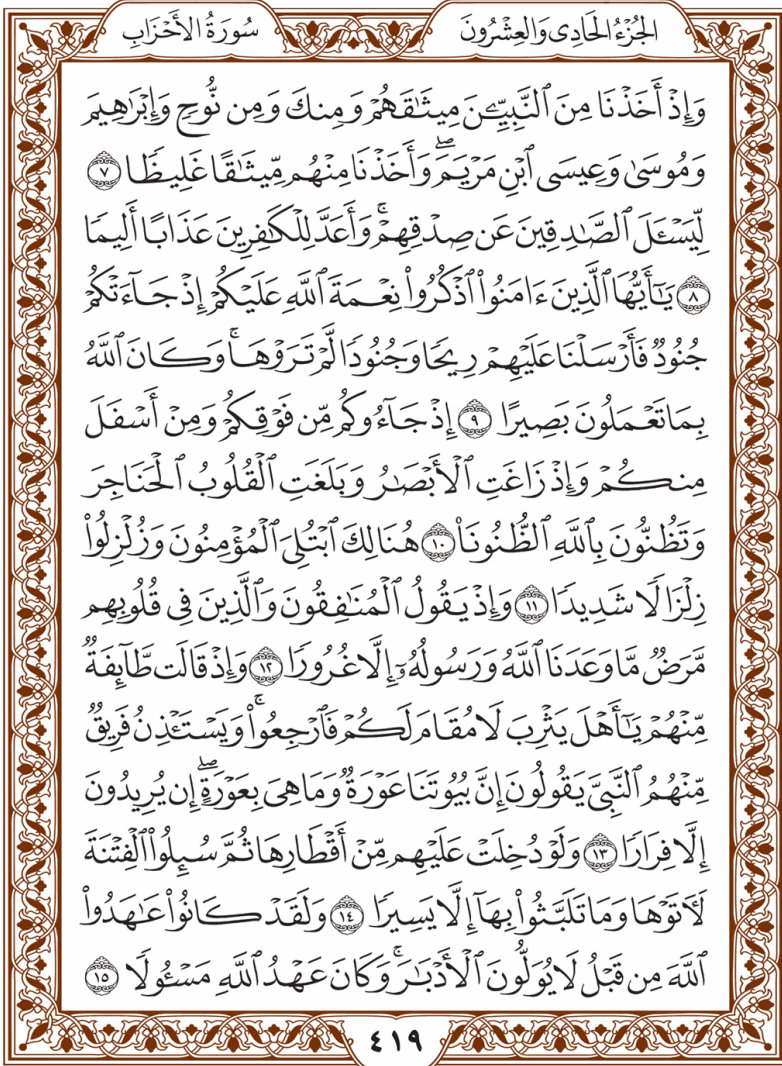 سُورَةُ الأَحْزَابِ
الجُزْءُ الحَادِي وَالعِشْرُونَ
وَإِذْ أَخَذْنَا مِنَ ٱلنَّبِيِّـۧنَ مِيثَـٰقَهُمْ وَمِنكَ وَمِن نُّوحٍ وَإِبْرَٰهِيمَ
وَمُوسَىٰ وَعِيسَى ٱبْنِ مَرْيَمَۖ وَأَخَذْنَا مِنْهُم مِّيثَـٰقًا غَلِيظًا ٧
لِّيَسْـَٔلَ ٱلصَّـٰدِقِينَ عَن صِدْقِهِمْۚ وَأَعَدَّ لِلْكَـٰفِرِينَ عَذَابًا أَلِيمًا
٨ يَـٰٓأَيُّهَا ٱلَّذِينَ ءَامَنُوا۟ ٱذْكُرُوا۟ نِعْمَةَ ٱللَّهِ عَلَيْكُمْ إِذْ جَآءَتْكُمْ
جُنُودٌ فَأَرْسَلْنَا عَلَيْهِمْ رِيحًا وَجُنُودًا لَّمْ تَرَوْهَاۚ وَكَانَ ٱللَّهُ
بِمَا تَعْمَلُونَ بَصِيرًا ٩ إِذْ جَآءُوكُم مِّن فَوْقِكُمْ وَمِنْ أَسْفَلَ
مِنكُمْ وَإِذْ زَاغَتِ ٱلْأَبْصَـٰرُ وَبَلَغَتِ ٱلْقُلُوبُ ٱلْحَنَاجِرَ
وَتَظُنُّونَ بِٱللَّهِ ٱلظُّنُونَا۠ ١٠ هُنَالِكَ ٱبْتُلِيَ ٱلْمُؤْمِنُونَ وَزُلْزِلُوا۟
زِلْزَالًا شَدِيدًا ١١ وَإِذْ يَقُولُ ٱلْمُنَـٰفِقُونَ وَٱلَّذِينَ فِي قُلُوبِهِم
مَّرَضٌ مَّا وَعَدَنَا ٱللَّهُ وَرَسُولُهُۥٓ إِلَّا غُرُورًا ١٢ وَإِذْ قَالَت طَّآئِفَةٌ
مِّنْهُمْ يَـٰٓأَهْلَ يَثْرِبَ لَا مُقَامَ لَكُمْ فَٱرْجِعُوا۟ۚ وَيَسْتَـْٔذِنُ فَرِيقٌ
مِّنْهُمُ ٱلنَّبِيَّ يَقُولُونَ إِنَّ بُيُوتَنَا عَوْرَةٌ وَمَا هِيَ بِعَوْرَةٍۖ إِن يُرِيدُونَ
إِلَّا فِرَارًا ١٣ وَلَوْ دُخِلَتْ عَلَيْهِم مِّنْ أَقْطَارِهَا ثُمَّ سُئِلُوا۟ ٱلْفِتْنَةَ
لَـَٔاتَوْهَا وَمَا تَلَبَّثُوا۟ بِهَآ إِلَّا يَسِيرًا ١٤ وَلَقَدْ كَانُوا۟ عَـٰهَدُوا۟
ٱللَّهَ مِن قَبْلُ لَا يُوَلُّونَ ٱلْأَدْبَـٰرَۚ وَكَانَ عَهْدُ ٱللَّهِ مَسْـُٔولًا ١٥
٤١٩